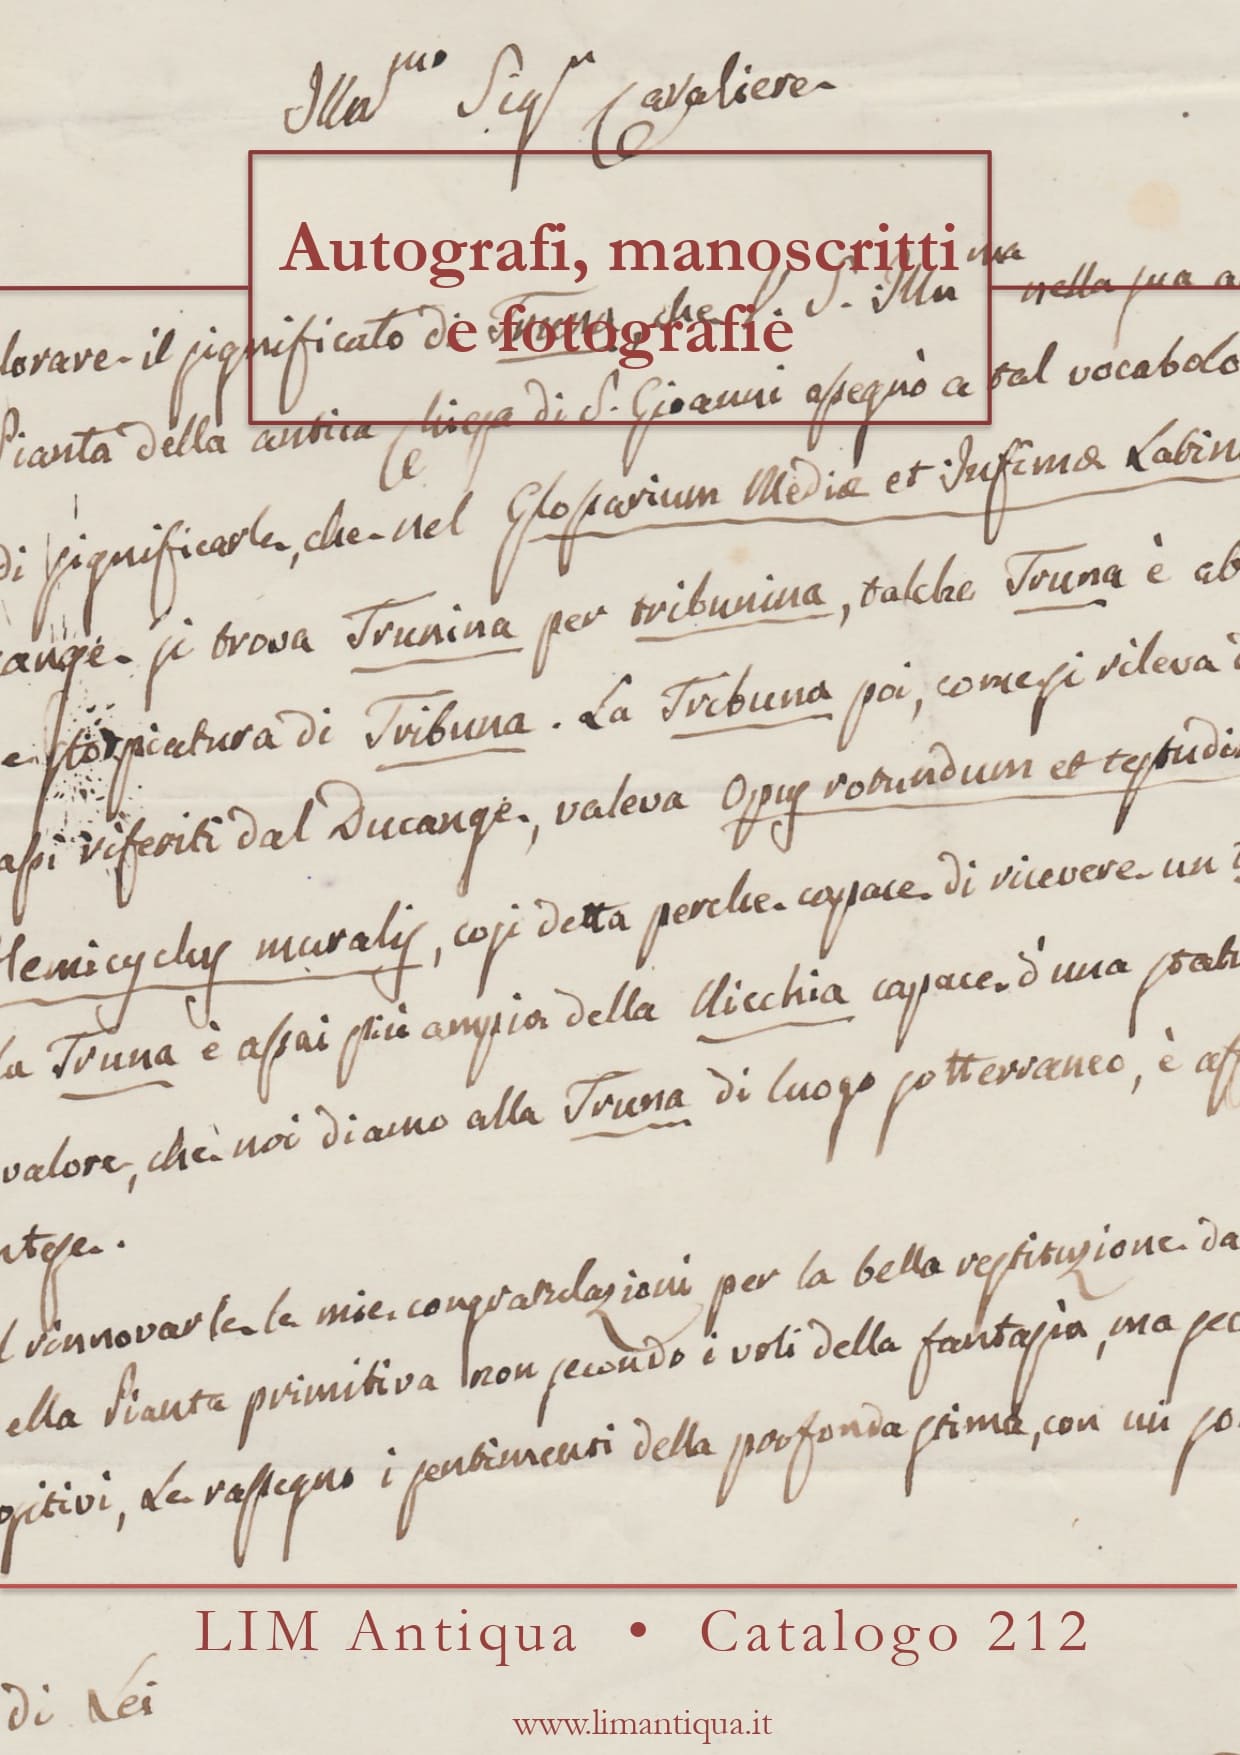 Illu^mo Sig^r Cavaliere
Autografi, manoscritti
e fotografie
lorare il significato di Truna, che V. S. Illu^ma nella sua a
Pianta della antica Chiesa di S. Gioanni assegnò a tal vocabolo
di significarle, che nel Glossarium Mediæ et Infimæ Latin
cange si trova Trunina per tribunina, talche Truna è ab
e storpiatura di Tribuna. La Tribuna poi, come si rileva
assi riferiti dal Ducange, valeva Opus rotundum et testudi
Hemicyclus muralis, così detta perche capace di ricevere un
La Truna è assai più ampia della Nicchia capace d'una statu
valore, che noi diamo alla Truna di luogo sotterraneo, è aff
ntese.
l rinnovarle le mie congratulazioni per la bella restituzione da
ella Pianta primitiva non secondo i voli della fantasia, ma sec
ositivi, Le rassegno i sentimenti della profonda stima, con cui so
LIM Antiqua • Catalogo 212
di Lei
www.limantiqua.it